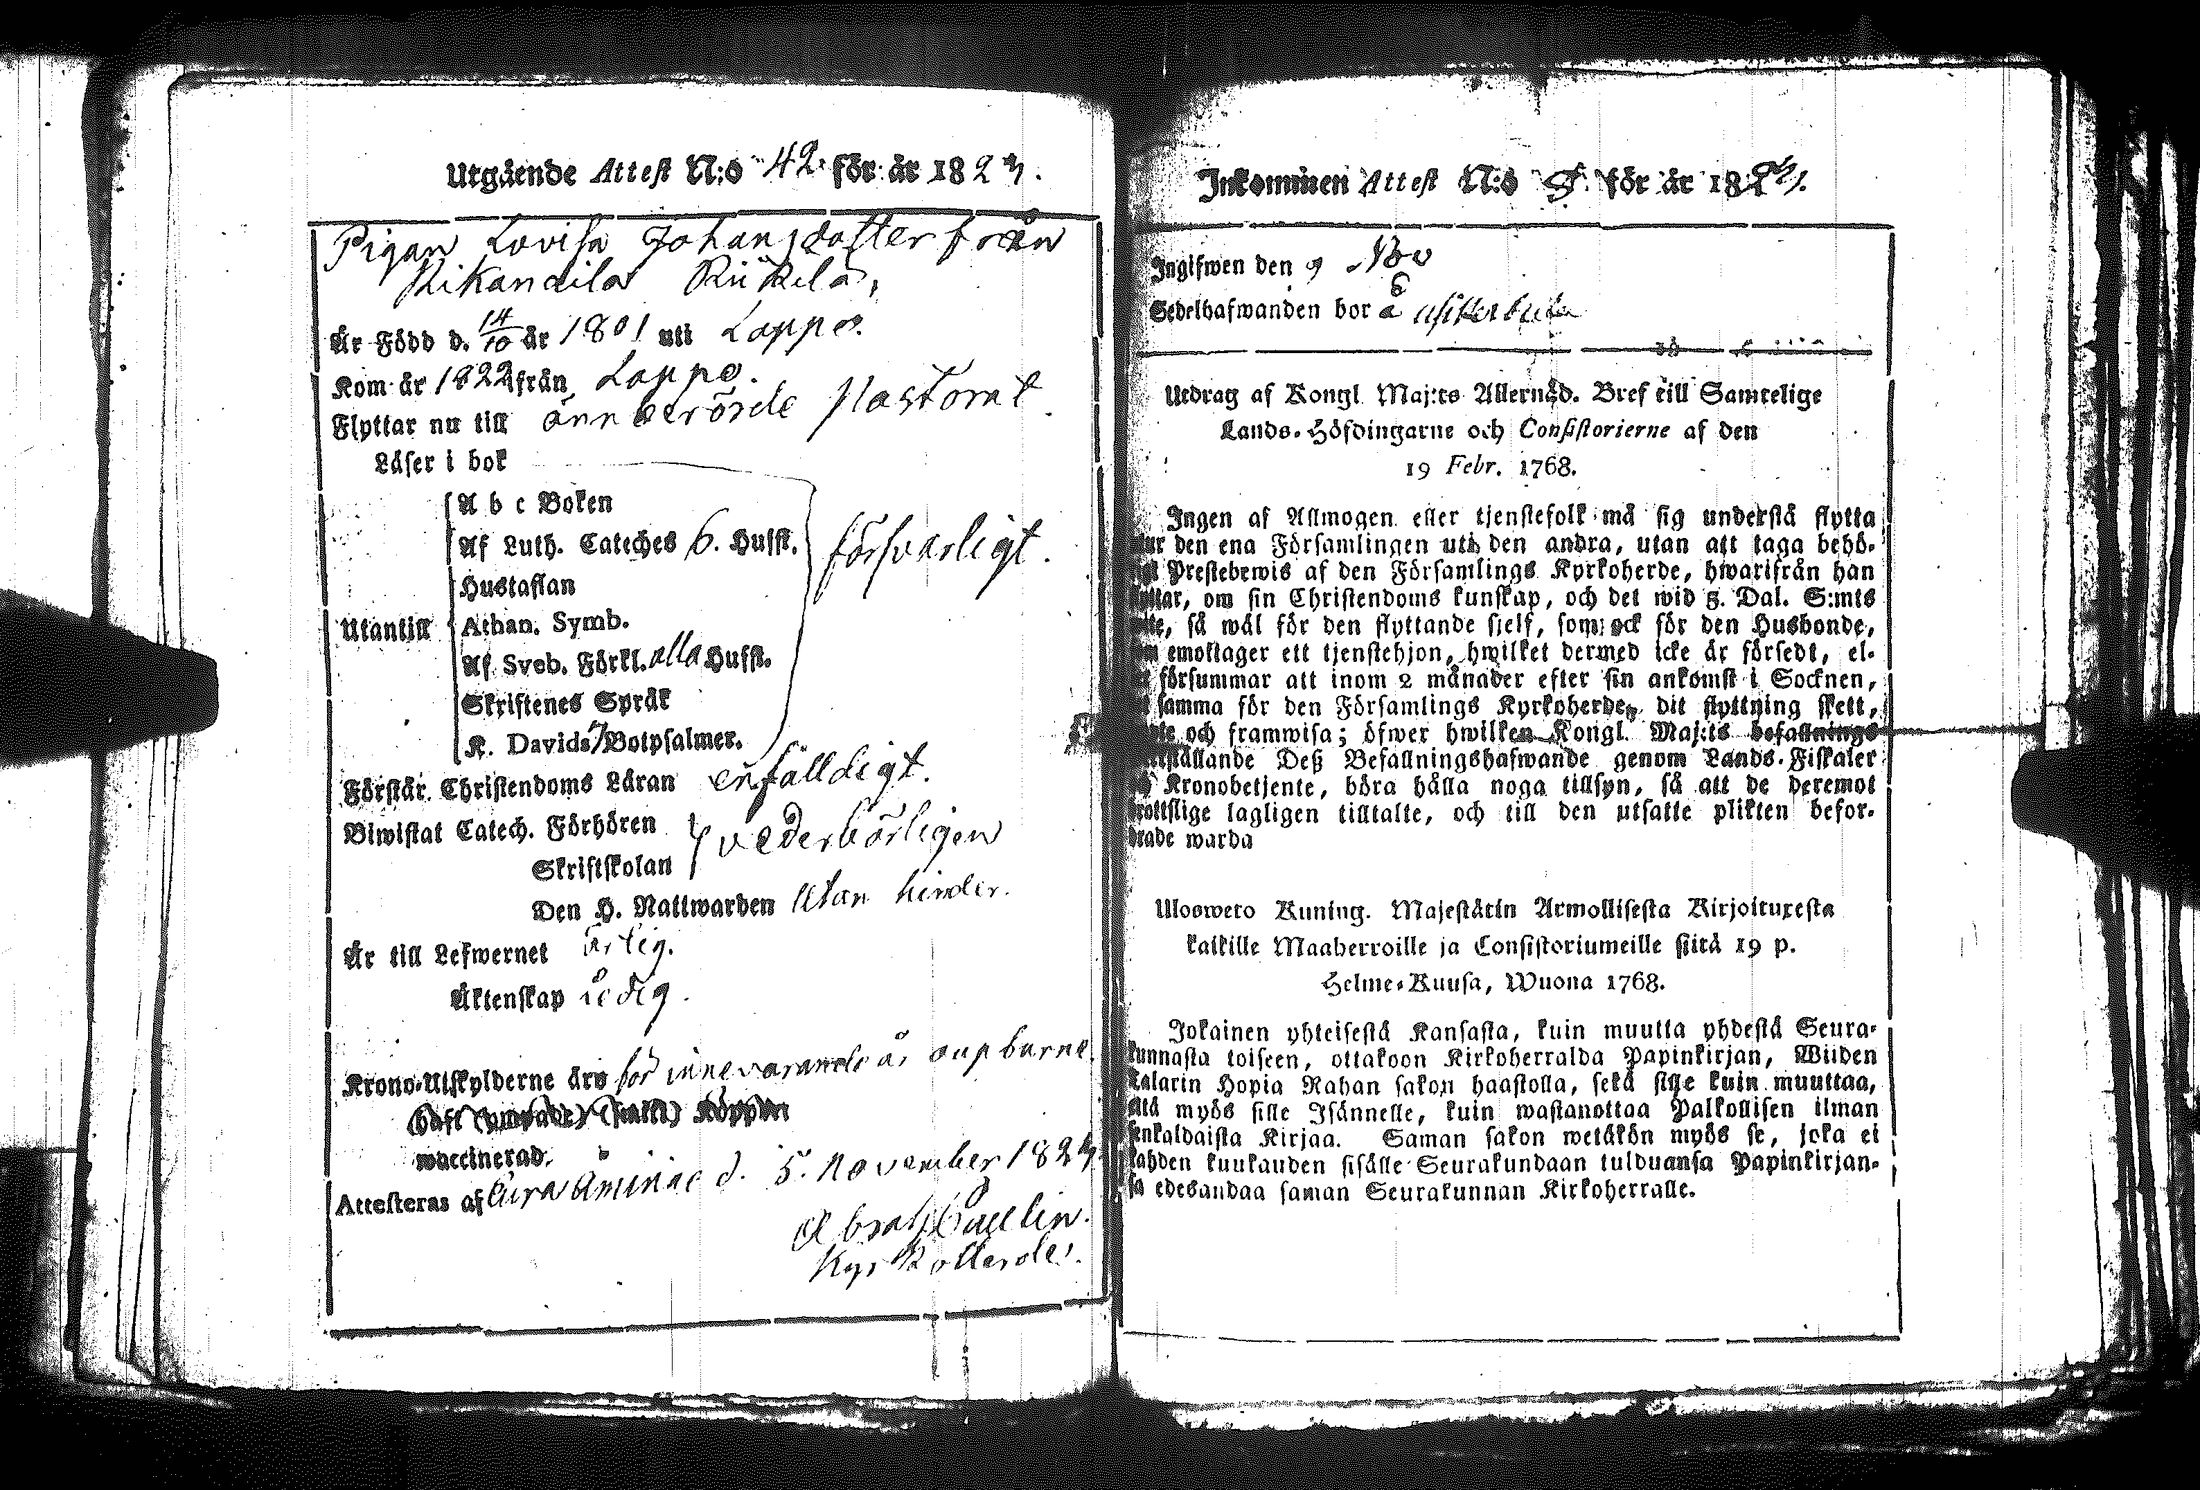 Utgående Attest N:o 42 för år 182
Pigan Lovisa Johansdotter från
Kikandila
Är Född d. 14/10 år 1801 uti Lappo.
Kom år 1822 från Lappo.
Flyttar nu till Pastorat.
Läser i bok
A b c Boken
Af Luth. Cateches 6. Husst. försvarligt.
Hustaflan
Utantill
Athan. Symb.
Af Sveb. Förkl. alla Husst.
Skriftenes Språk
K. Davids 7 Botpsalmer.
Förstår Christendoms Läran enfalldigt.
Biwistat Catech. Förhören vederbörligen
Skriftskolan
Den H. Nattwarden Utan hinder.
Är till Lefwernet ärlig.
Äktenskap ledig.
Krono-Utskylderne äro för innevarande år
haft Koppor
waccinerad.
Attesteras af Aura Aminne d. 5. November 182
Kyrkoherde.
Inkommen Attest N:o för år 18
Ingifwen den 9 Nov
Sedelhafwanden bor å
Utdrag af Kongl. Maj:ts Allernåd. Bref till Samtelige
Lands-Höfdingarne och Consistorierne af den
19 Febr. 1768.
Ingen af Allmogen eller tjenstefolk må sig understå flytta
ur den ena Församlingen uti den andra, utan att taga behö-
Prestebewis af den Församlings Kyrkoherde, hwarifrån han
om sin Christendoms kunskap, och det wid 5. Dal. S:mts
så wäl för den flyttande sjelf, som ock för den Husbonde,
emottager ett tjenstehjon, hwilket dermed icke är försedt, el-
försummar att inom 2 månader efter sin ankomst i Socknen,
samma för den Församlings Kyrkoherde, dit flyttning skett,
och framwisa; öfwer hwilken Kongl. Maj:ts befallnings
Deß Befallningshafwande genom Lands-Fiskaler
Kronobetjente, böra hålla noga tillsyn, så att de deremot
brottslige lagligen tilltalte, och till den utsatte plikten befor-
drade warda
Ulosweto Kuning. Majestätin Armollisesta Kirjoituxesta
kaikille Maaherroille ja Consistoriumeille siitä 19 p.
Helme-Kuusa, Wuona 1768.
Jokainen yhteisestä Kansasta, kuin muutta yhdestä Seura-
kunnasta toiseen, ottakoon Kirkoherralda Papinkirjan, Wiiden
talarin Hopia Rahan sakon haastolla, sekä sille kuin muuttaa,
että myös sille Isännelle, kuin wastanottaa Palkollisen ilman
senkaldaista Kirjaa. Saman sakon wetäkön myös se, joka ei
kahden kuukauden sisälle Seurakundaan tulduansa Papinkirjan-
sa edesandaa saman Seurakunnan Kirkoherralle.